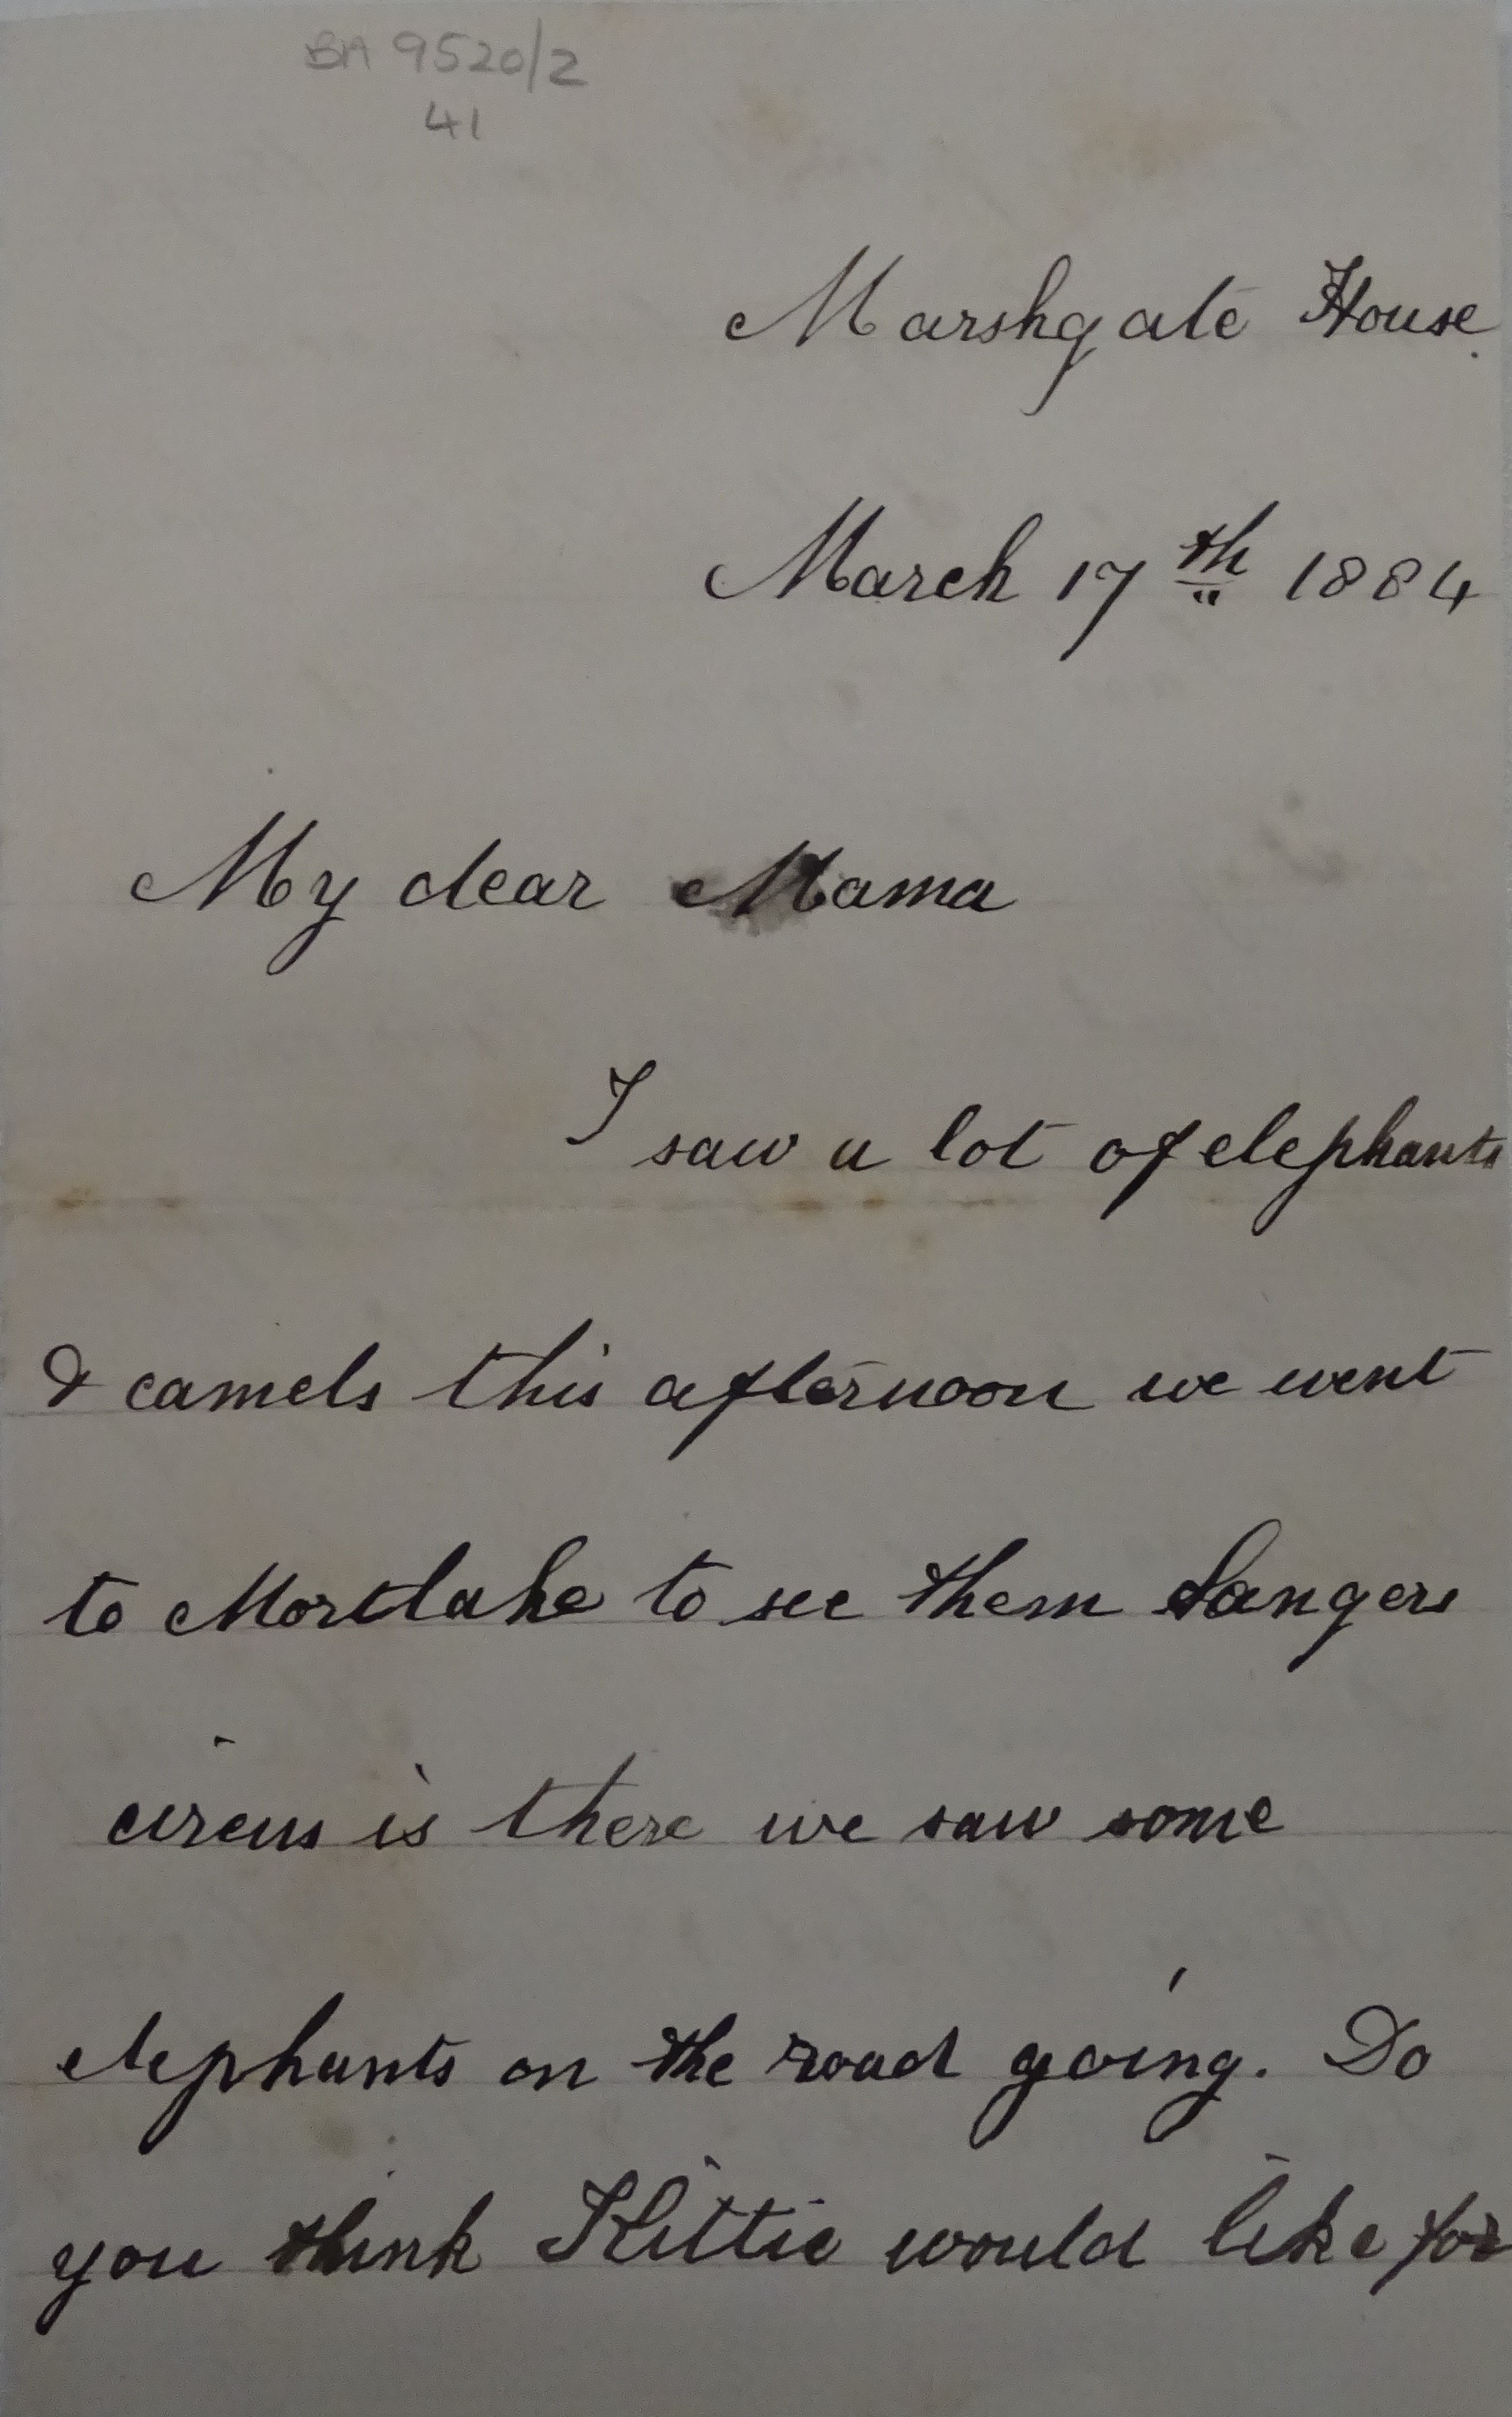 BA 9520/2
41
Marshgate House.
March 17th 1884
My dear Mama
I saw a lot of elephants
& camels this afternoon we went
to Mortlake to see them Sangers
circus is there we saw some
elephants on the road going. Do
you think Kittie would like for